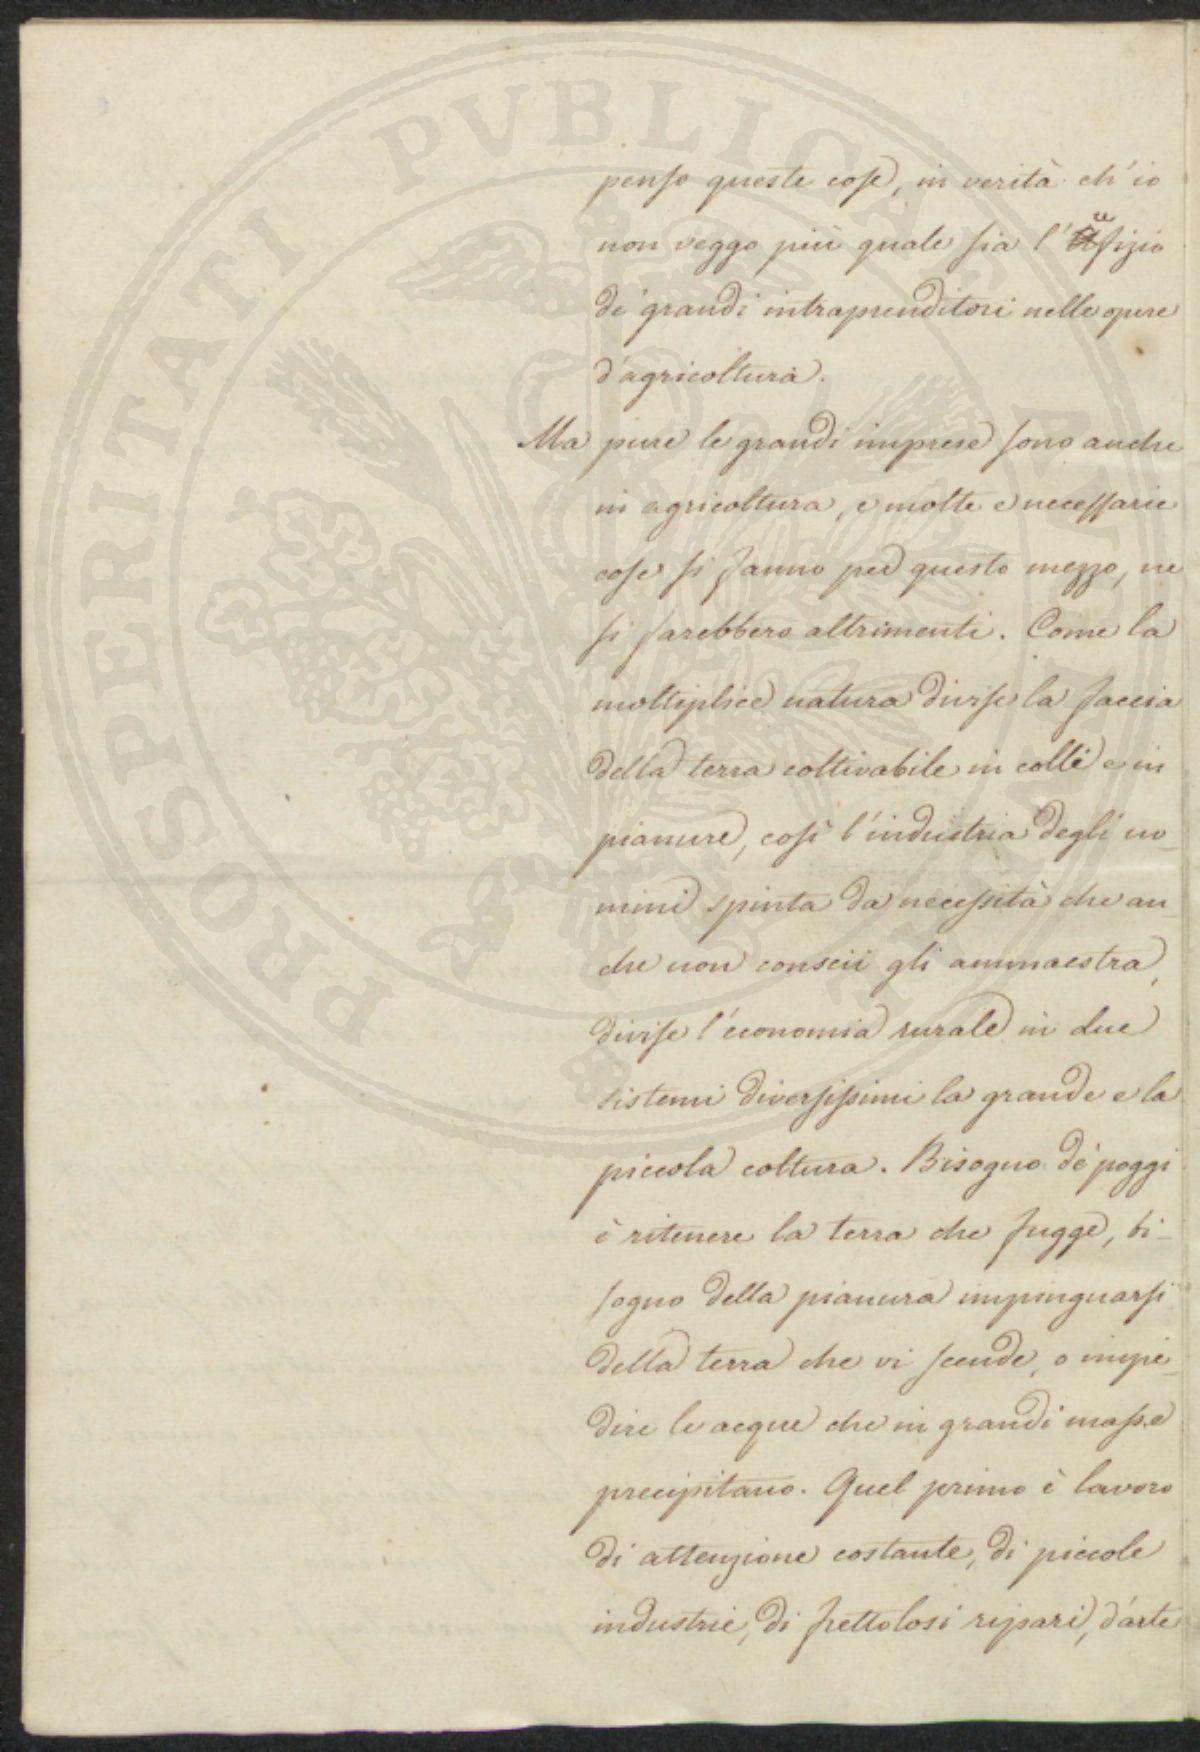 PROSPERITATI PVBLICAE AVGENDAE
penso queste cose, in verità ch'io
non veggo più quale sia l'ufizio
de' grandi intraprenditori nelle opere
d'agricoltura.
Ma pure le grandi imprese sono anche
in agricoltura, e molte e necessarie
cose si fanno per questo mezzo, ne
si farebbero altrimenti. Come la
moltiplice natura divise la faccia
della terra coltivabile in colli e in
pianure, così l'industria degli uo_
mini spinta da necessità che an_
che non conscii gli ammaestra,
divise l'economia rurale in due
sistemi diversissimi la grande e la
piccola coltura. Bisogno de' poggi
è ritenere la terra che fugge, bi_
sogno della pianura impinguarsi
della terra che vi scende, o impe_
dire le acque che in grandi masse
precipitano. Quel primo è lavoro
di attenzione costante, di piccole
industrie, di frettolosi ripari, d'arte